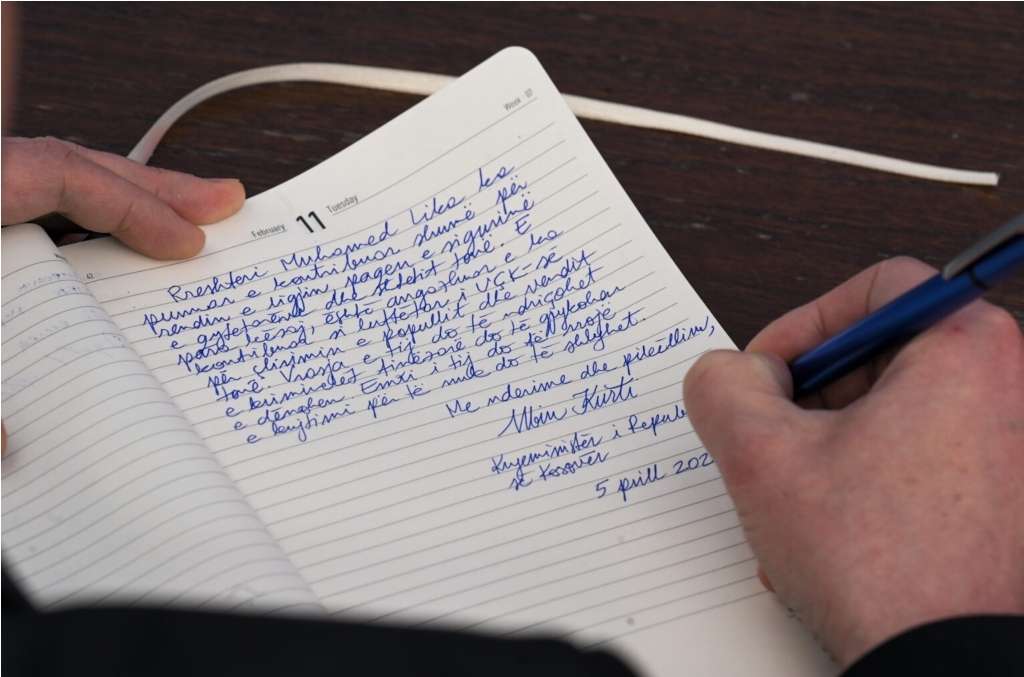 Week 07
February 11 Tuesday
Rreshteri Muhamed Lika ka
punuar e kontribuar shumë për
rendin e ligjin, paqen e sigurinë
e qytetarëve dhe shtetit tonë. E
para kësaj, është angazhuar e ka
kontribuar si luftëtar i UÇK-së
për çlirimin e popullit dhe vendit
tonë. Vrasja e tij do të ndriçohet
e kriminelët tinëzarë do të gjykohen
e dënohen. Emri i tij do të nrojë
e kujtimi për të nuk do të shlyhet.
Me nderime dhe pikëllim,
Albin Kurti
Kryeministër i
së Kosovës
5 prill